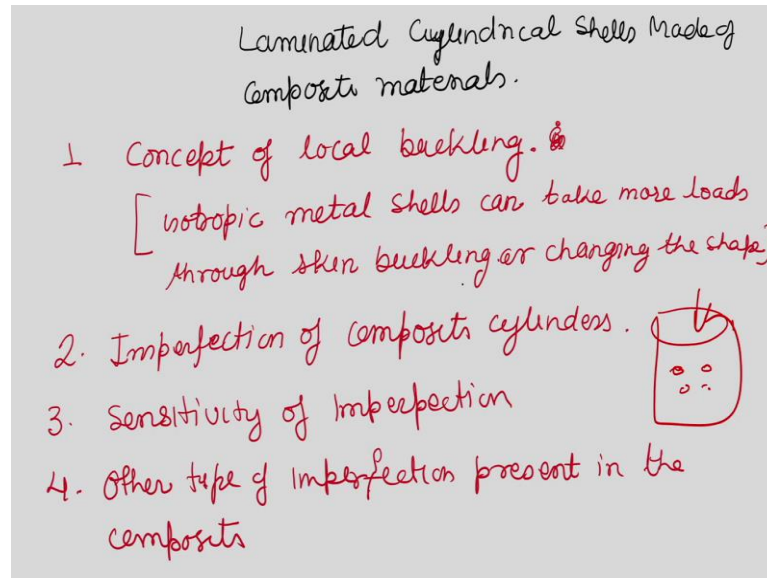 Laminated Cylindrical Shells Made of
Composite materials.
1 Concept of local buckling.
[isotropic metal shells can take more loads
through skin buckling or changing the shape]
2. Imperfection of composite cylinders.
3. Sensitivity of Imperfection
4. Other type of imperfection present in the
composits